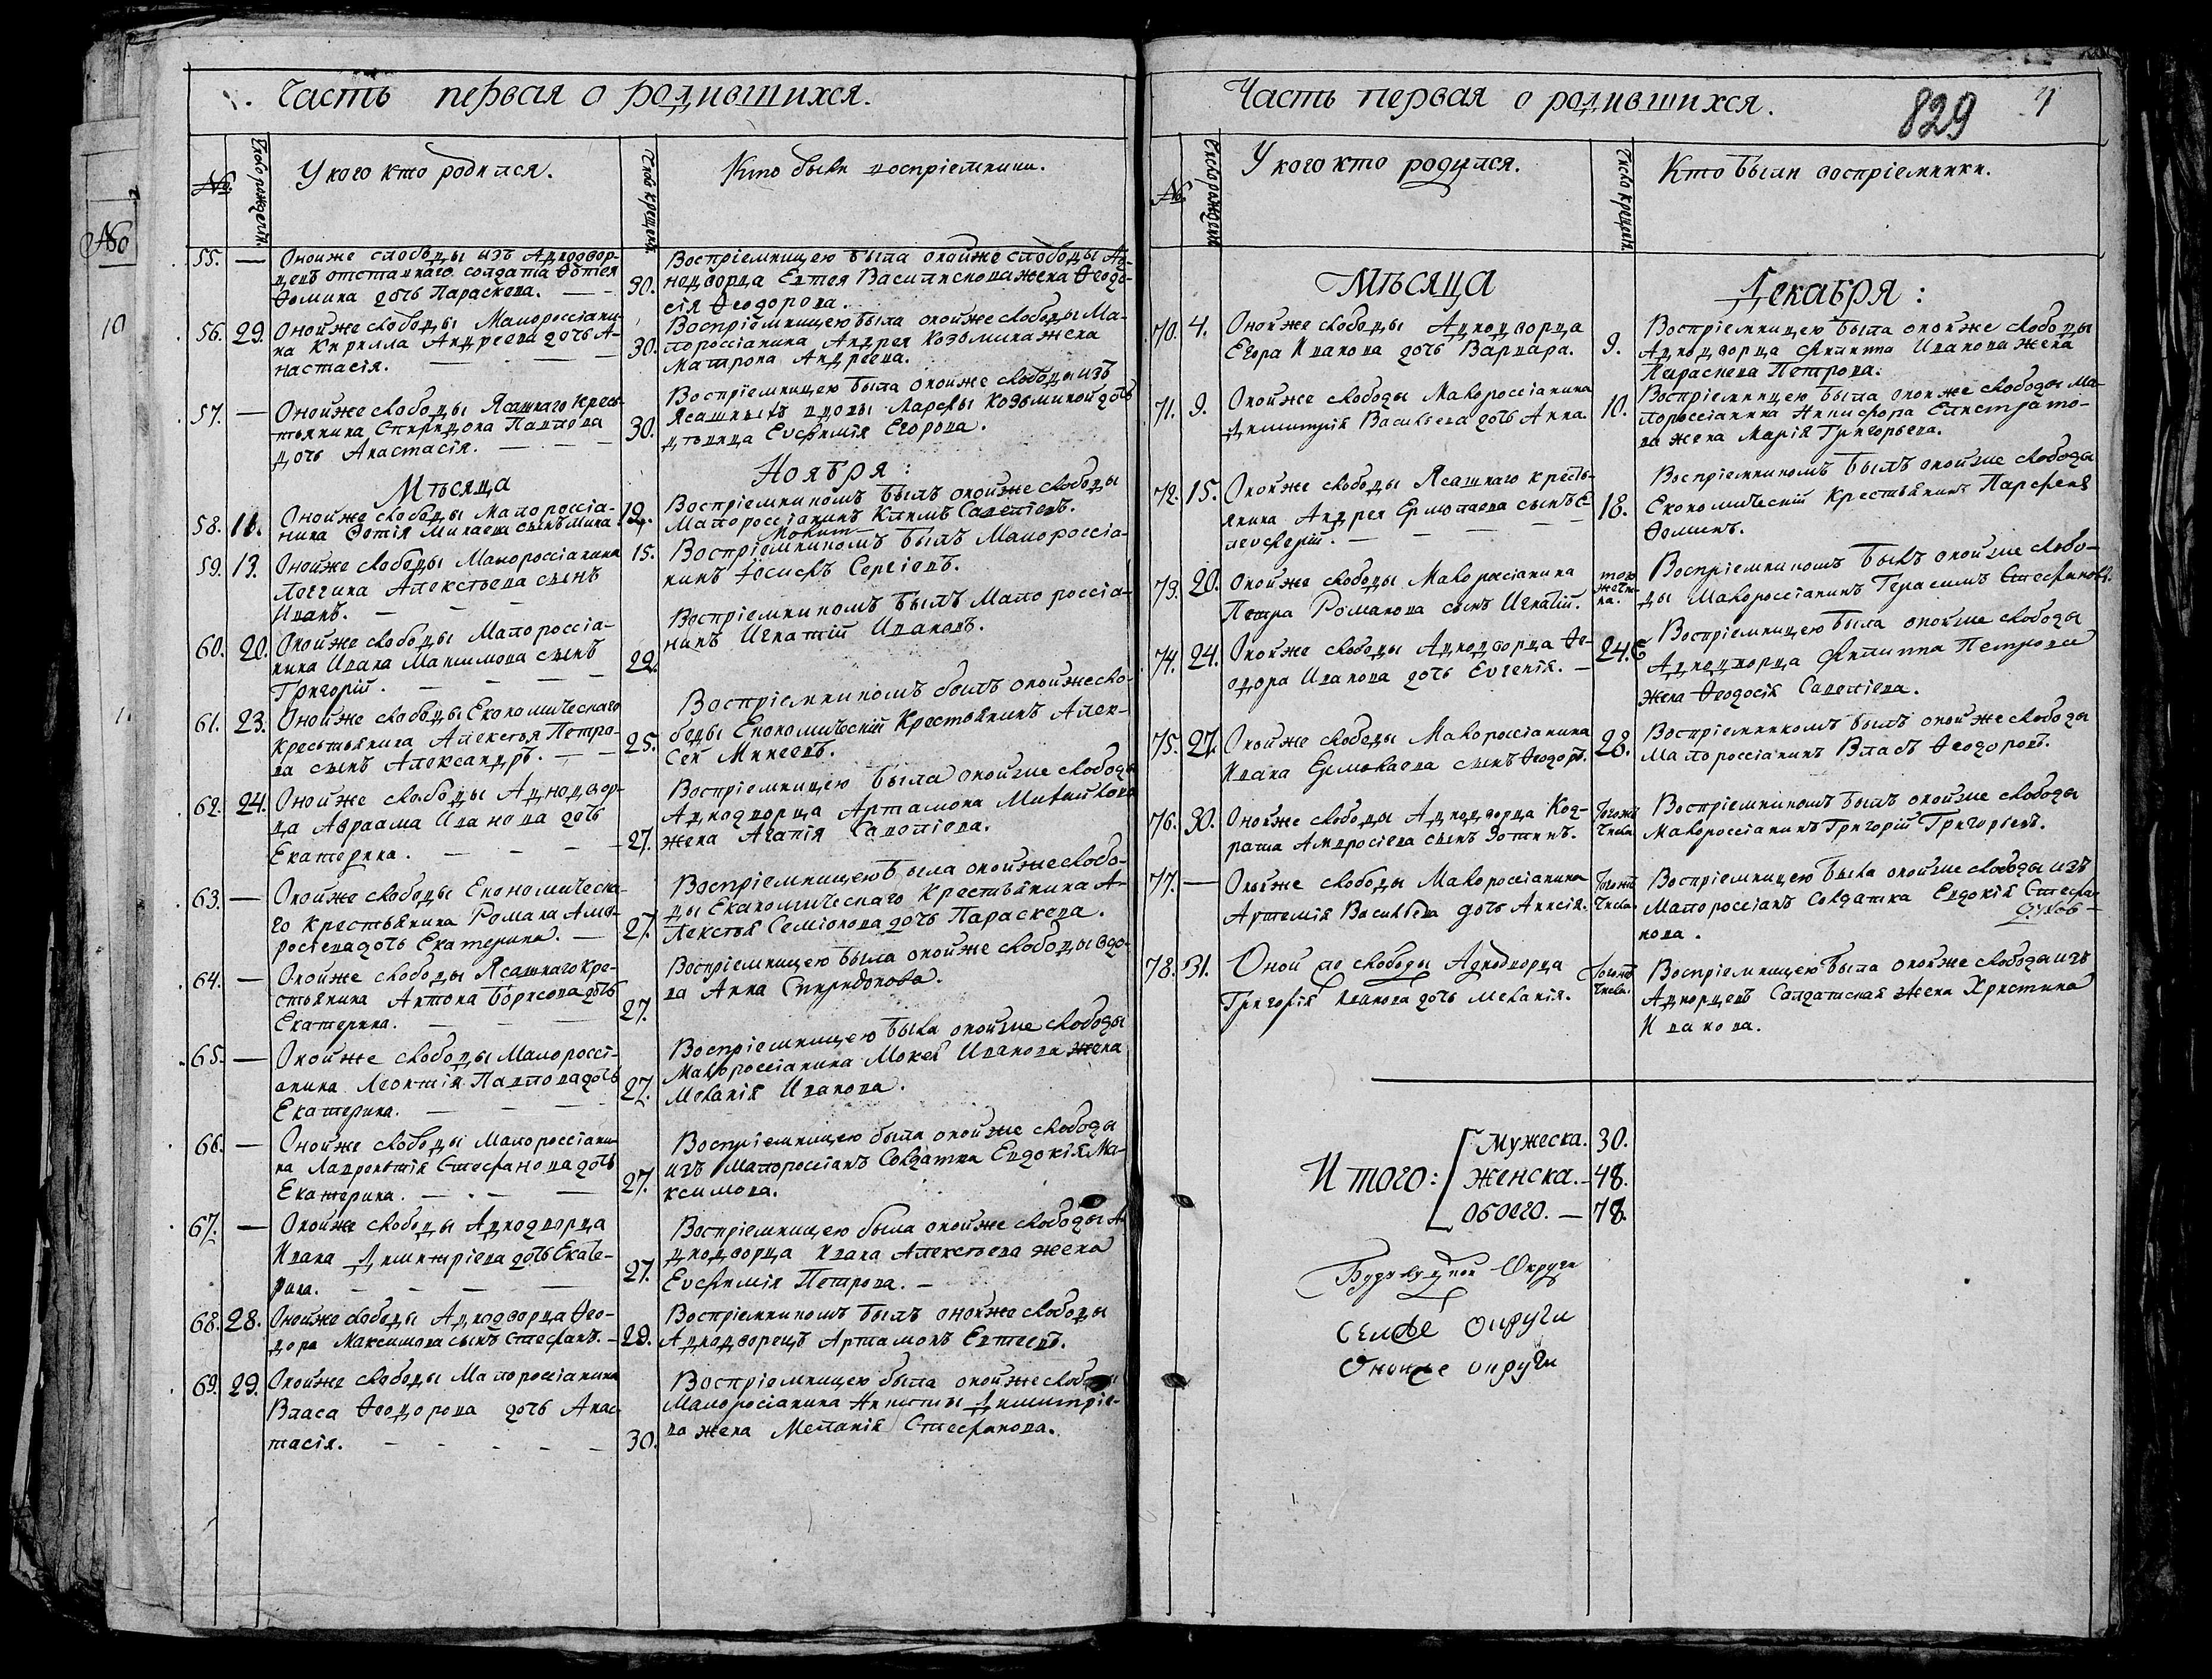 Часть первая о родившихся.
№
Число рожденія.
У кого кто родился.
Число крещенія.
Кто были воспріемники.
55. —
Оной же слободы изъ Аднодвор-
цевъ отставнаго солдата Фотея
Фомина дочь Параскева. — —
30.
Воспріемницею была оной же слободы Ад-
нодворца Евтея Василискова жена Феодо-
сія Феодорова.
56. 29.
Оной же слободы Малороссіани-
на Кирилла Андреева дочь А-
настасія. — — —
30.
Воспріемницею была оной же слободы Ма-
лороссіанина Андрея Козомина жена
Матрона Андреева.
57. —
Оной же слободы Ясашнаго кресь-
тьянина Спиридона Павлова
дочь Анастасія. — —
30.
Воспріемницею была оной же слободы изъ
Ясашныхъ вдовы Марѳы Козьминой дочь
дѣвица Евфимія Егорова.
Мѣсяца Ноября:
58. 11.
Оной же слободы Малороссіа-
нина Фотія Минаева сынъ Мина
12.
Воспріемникомъ былъ оной же слободы
Малороссіанинъ Климъ Савеліевъ.
59. 13.
Оной же слободы Малороссіанина
Логгина Алексѣева сынъ
Иванъ. — — —
15.
Воспріемникомъ былъ Малороссіа-
нинъ Іосифъ Сергіевъ.
60. 20.
Оной же слободы Малороссіа-
нина Ивана Максимова сынъ
Григорій. — — —
22.
Воспріемникомъ былъ Малороссіа-
нинъ Игнатій Ивановъ.
61. 23.
Оной же слободы Економическаго
крестьянина Алексѣя Петро-
ва сынъ Александръ. — —
25.
Воспріемникомъ былъ оной же сло-
боды Економическій Крестьянинъ Алек-
сей Минеевъ.
62. 24.
Оной же слободы Аднодвор-
ца Авраама Иванова дочь
Екатерина. — — —
27.
Воспріемницею была оной же слободы
Аднодворца Артамона Михайлова
жена Агапія Савеліева.
63. —
Оной же слободы Економическа-
го крестьянина Романа Амв-
росіева дочь Екатерина. —
27.
Воспріемницею была оной же слобо-
ды Екanomическаго Крестьянина А-
лексѣя Семіонова дочь Параскева.
64. —
Оной же слободы Ясашнаго кре-
стьянина Антона Борисова дочь
Екатерина. — — —
27.
Воспріемницею была оной же слободы вдо-
ва Анна Спиридонова.
65. —
Оной же слободы Малоросcі-
анина Леонтія Павлова дочь
Екатерина. — — —
27.
Воспріемницею была оной же слободы
Малороссіанина Мокея Иванова жена
Меланія Иванова.
66. —
Оной же слободы Малороссіани-
на Лаврентія Стефанова дочь
Екатерина. — — —
27.
Воспріемницею была оной же слободы
изъ Малороссіанъ Солдатка Евдокія Ма-
ксимова.
67. —
Оной же слободы Аднодворца
Ивана Димитріева дочь Екате-
рина. — — —
27.
Воспріемницею была оной же слободы А-
днодворца Ивана Алексѣева жена
Евфимія Петрова. —
68. 28.
Оной же слободы Аднодворца Фео-
дора Максимова сынъ Стефанъ. —
29.
Воспріемникомъ былъ оной же слободы
Аднодворецъ Артамонъ Евтеевъ.
69. 29.
Оной же слободы Малороссіанина
Власа Феодорова дочь Анас-
тасія. — — — —
30.
Воспріемницею была оной же слободы
Малоросіанина Никиты Димитріе-
ва жена Меланія Стефанова.
Часть первая о родившихся.
829
№
Число рожденія
У кого кто родился.
Число крещенія.
Кто были воспріемники.
Мѣсяца Декабря:
70. 4.
Оной же слободы Аднодворца
Егора Иванова дочь Варвара.
9.
Воспріемницею была оной же слободы
Аднодворца Филиппа Иванова жена
Параскева Петрова.
71. 9.
Оной же слободы Малороссіанина
Димитрія Васильева дочь Анна.
10.
Воспріемницею была оной же слободы Ма-
лороссіанина Никифора Елистрато-
ва жена Марія Григорьева.
72. 15.
Оной же слободы Ясашнаго кресть-
янина Андрея Ермолаева сынъ Е-
левферій. — — —
18.
Воспріемникомъ былъ оной же слободы
Економическій Крестьянинъ Парфенъ
Фоминъ.
73. 20.
Оной же слободы Малороссіанина
Петра Романова сынъ Игнатій.
того
же чис-
ла.
Воспріемникомъ былъ оной же слобо-
ды Малороссіанинъ Герасимъ Стефановъ.
74. 24.
Оной же слободы Аднодворца Фе-
одора Иванова дочь Евгенія. —
24.
Воспріемницею была оной же слободы
Аднодворца Филиппа Петрова
жена Феодосія Савеліева.
75. 27.
Оной же слободы Малороссіанина
Ивана Ермолаева сынъ Феодоръ.
28.
Воспріемникомъ былъ оной же слободы
Малороссіанинъ Власъ Феодоровъ.
76. 30.
Оной же слободы Аднодворца Код-
рата Амвросіева сынъ Зотикъ.
Тогожъ
Числа
Воспріемникомъ былъ оной же слободы
Малороссіанинъ Григорій Григорьевъ.
77. —
Оной же слободы Малороссіанина
Артемія Васильева дочь Анисія.
Тогожъ
Числа.
Воспріемницею была оной же слободы изъ
Малороссіанъ Солдатка Евдокія Стефа-
нова.
78. 31.
Оной же слободы Аднодворца
Григорія Иванова дочь Меланія.
Тогожъ
Числа.
Воспріемницею была оной же слободы изъ
Аднорцевъ Салдатская Жена Христина
Иванова.
Итого:
Мужеска. 30.
женска. — 48.
обоего. — 78.
Округи
округи
округи